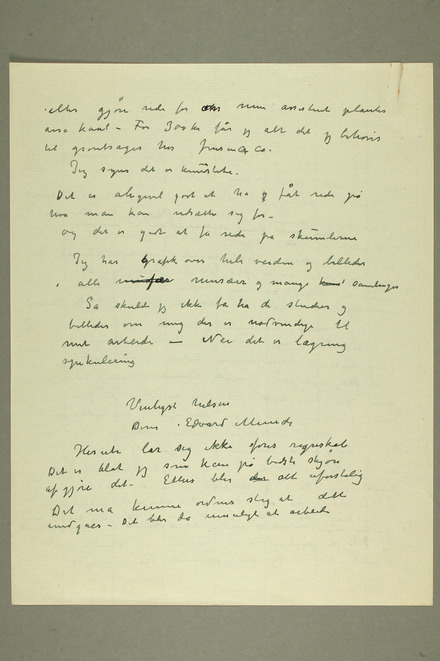 eller gjøre rede for min
kaal – For 300 kr får jeg alt det jeg behøver
til grøntsager hos Jensen & Co.
Jeg synes det er
Det er alligevel godt at ha få rede på
hva man kan udsætte sig for –
og det er godt at få rede på skumlerne
Jeg har grafik over hele verden og billeder
i alle museer og mange samlinger
Så skulde jeg ikke få ha de studier og
billeder om mig der er nødvendige til
mit arbeide – Nei det er lagring
spekulering
Venligst hilsen
Deres Edvard Munch
Herute lar sig ikke føres regnskab
Det er blot jeg som kan på bedste skjøn
afgjøre det – Ellers blir alt uforståelig
Det må kunne ordnes slig at det
undgåes – Det blir da umuligt at arbeide